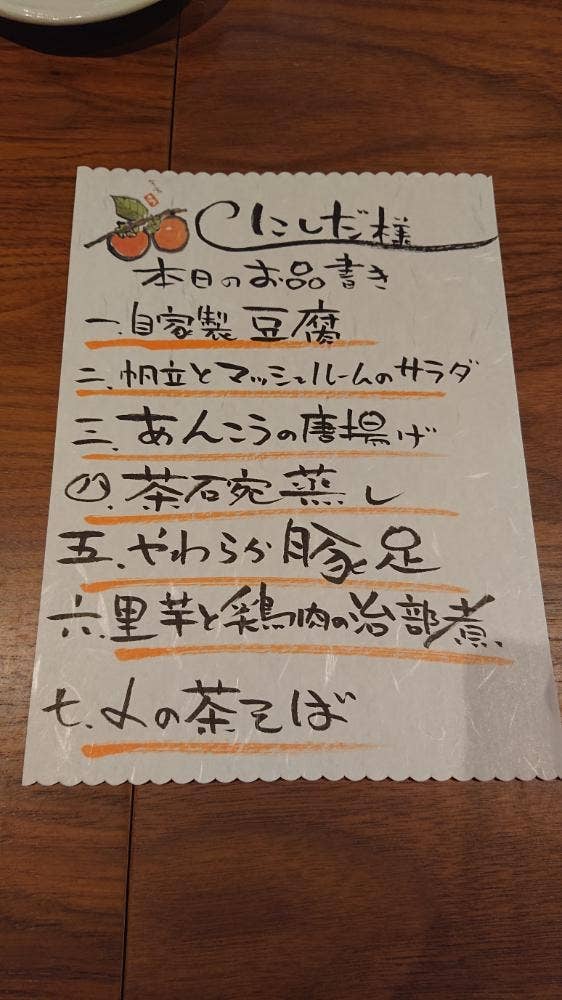 にしだ様
本日のお品書き
一.自家製豆腐
二.帆立とマッシュルームのサラダ
三.あんこうの唐揚げ
四.茶碗蒸し
五.やわらか豚足
六.里芋と鶏肉の治部煮
七.〆の茶そば